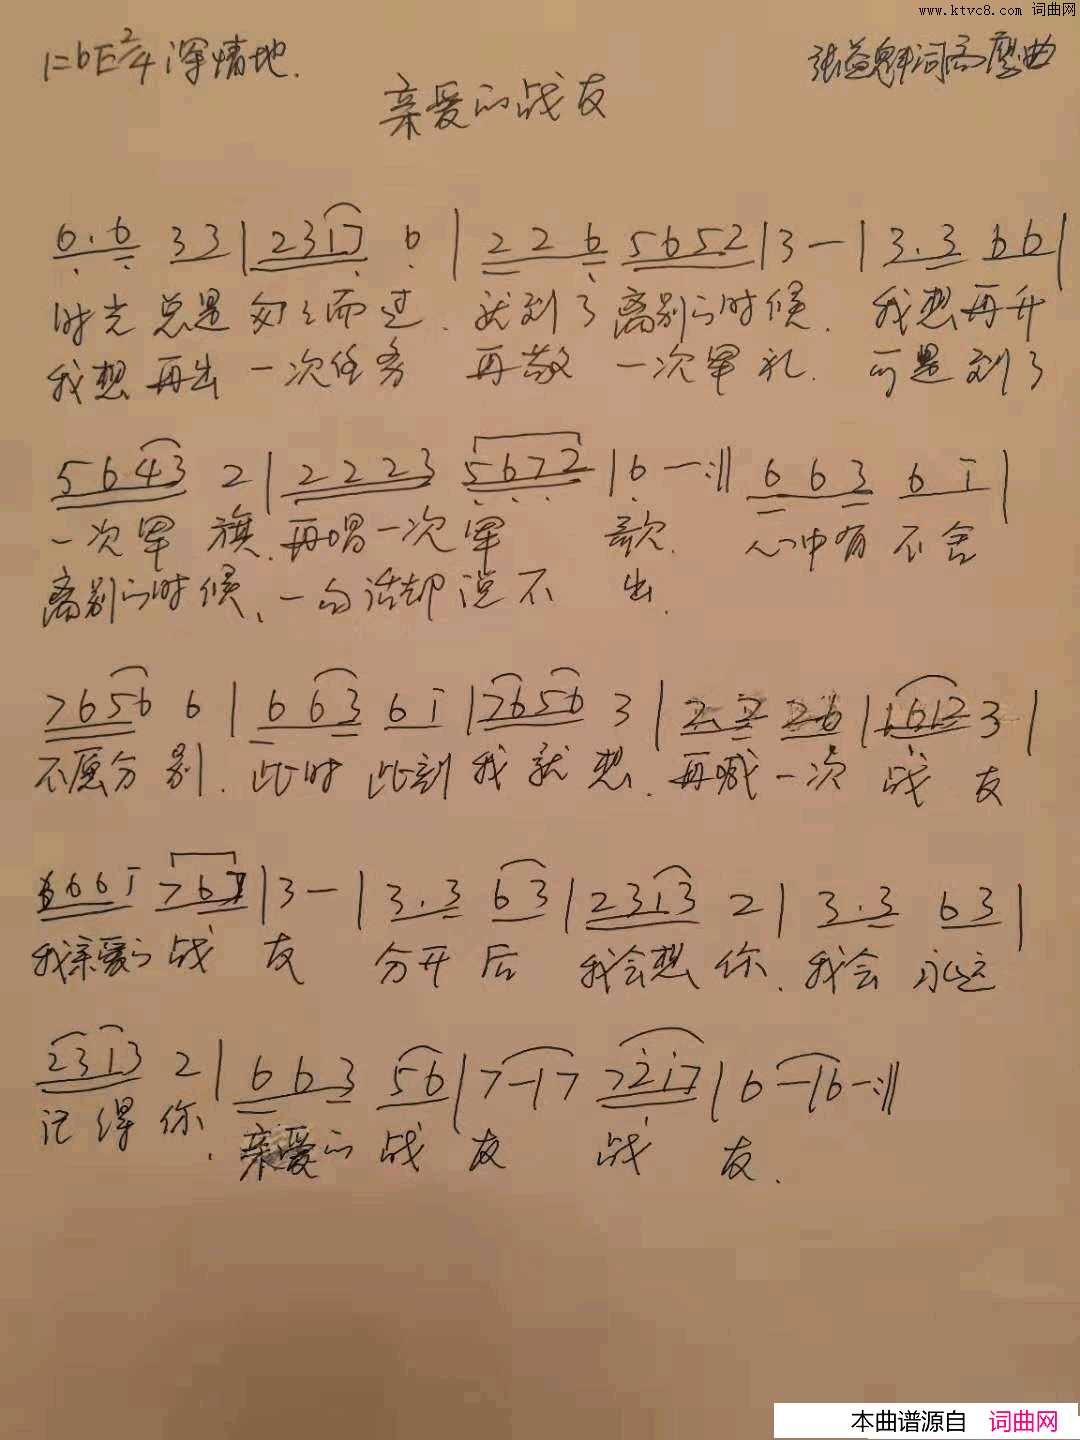 www.ktvc8.com 词曲网
1=bE 2/4 深情地.
词 曲
亲爱的战友
6. 6 3 3 | 2 3 1 7 6 | 2 2 6 5 6 5 2 | 3 — | 3. 3 6 6 |
时光总是匆匆而过.就到了离别的时候.我想再升
我想再出一次任务 再敬一次军礼.可是到了
5 6 4 3 2 | 2 2 2 3 5 6 7 2 | 6 — :‖ 6 6 3 6 i |
一次军旗.再唱一次军歌.心中有不舍
离别的时候、一句话却说不出.
7 6 5 6 6 | 6 6 3 6 i | 7 6 5 6 3 | 2. 2 2 6 | 1 6 1 2 3 |
不愿分别.此时此刻我就想.再喊一次战友
6 6 6 i 7 6 7 | 3 — | 3. 3 6 3 | 2 3 1 3 2 | 3. 3 6 3 |
我亲爱的战友 分开后 我会想你.我会永远
2 3 1 3 2 | 6 6 3 5 6 | 7 — | 7 7 2 i 7 | 6 — | 6 — :‖
记得你.亲爱的战友 战友.
本曲谱源自 词曲网